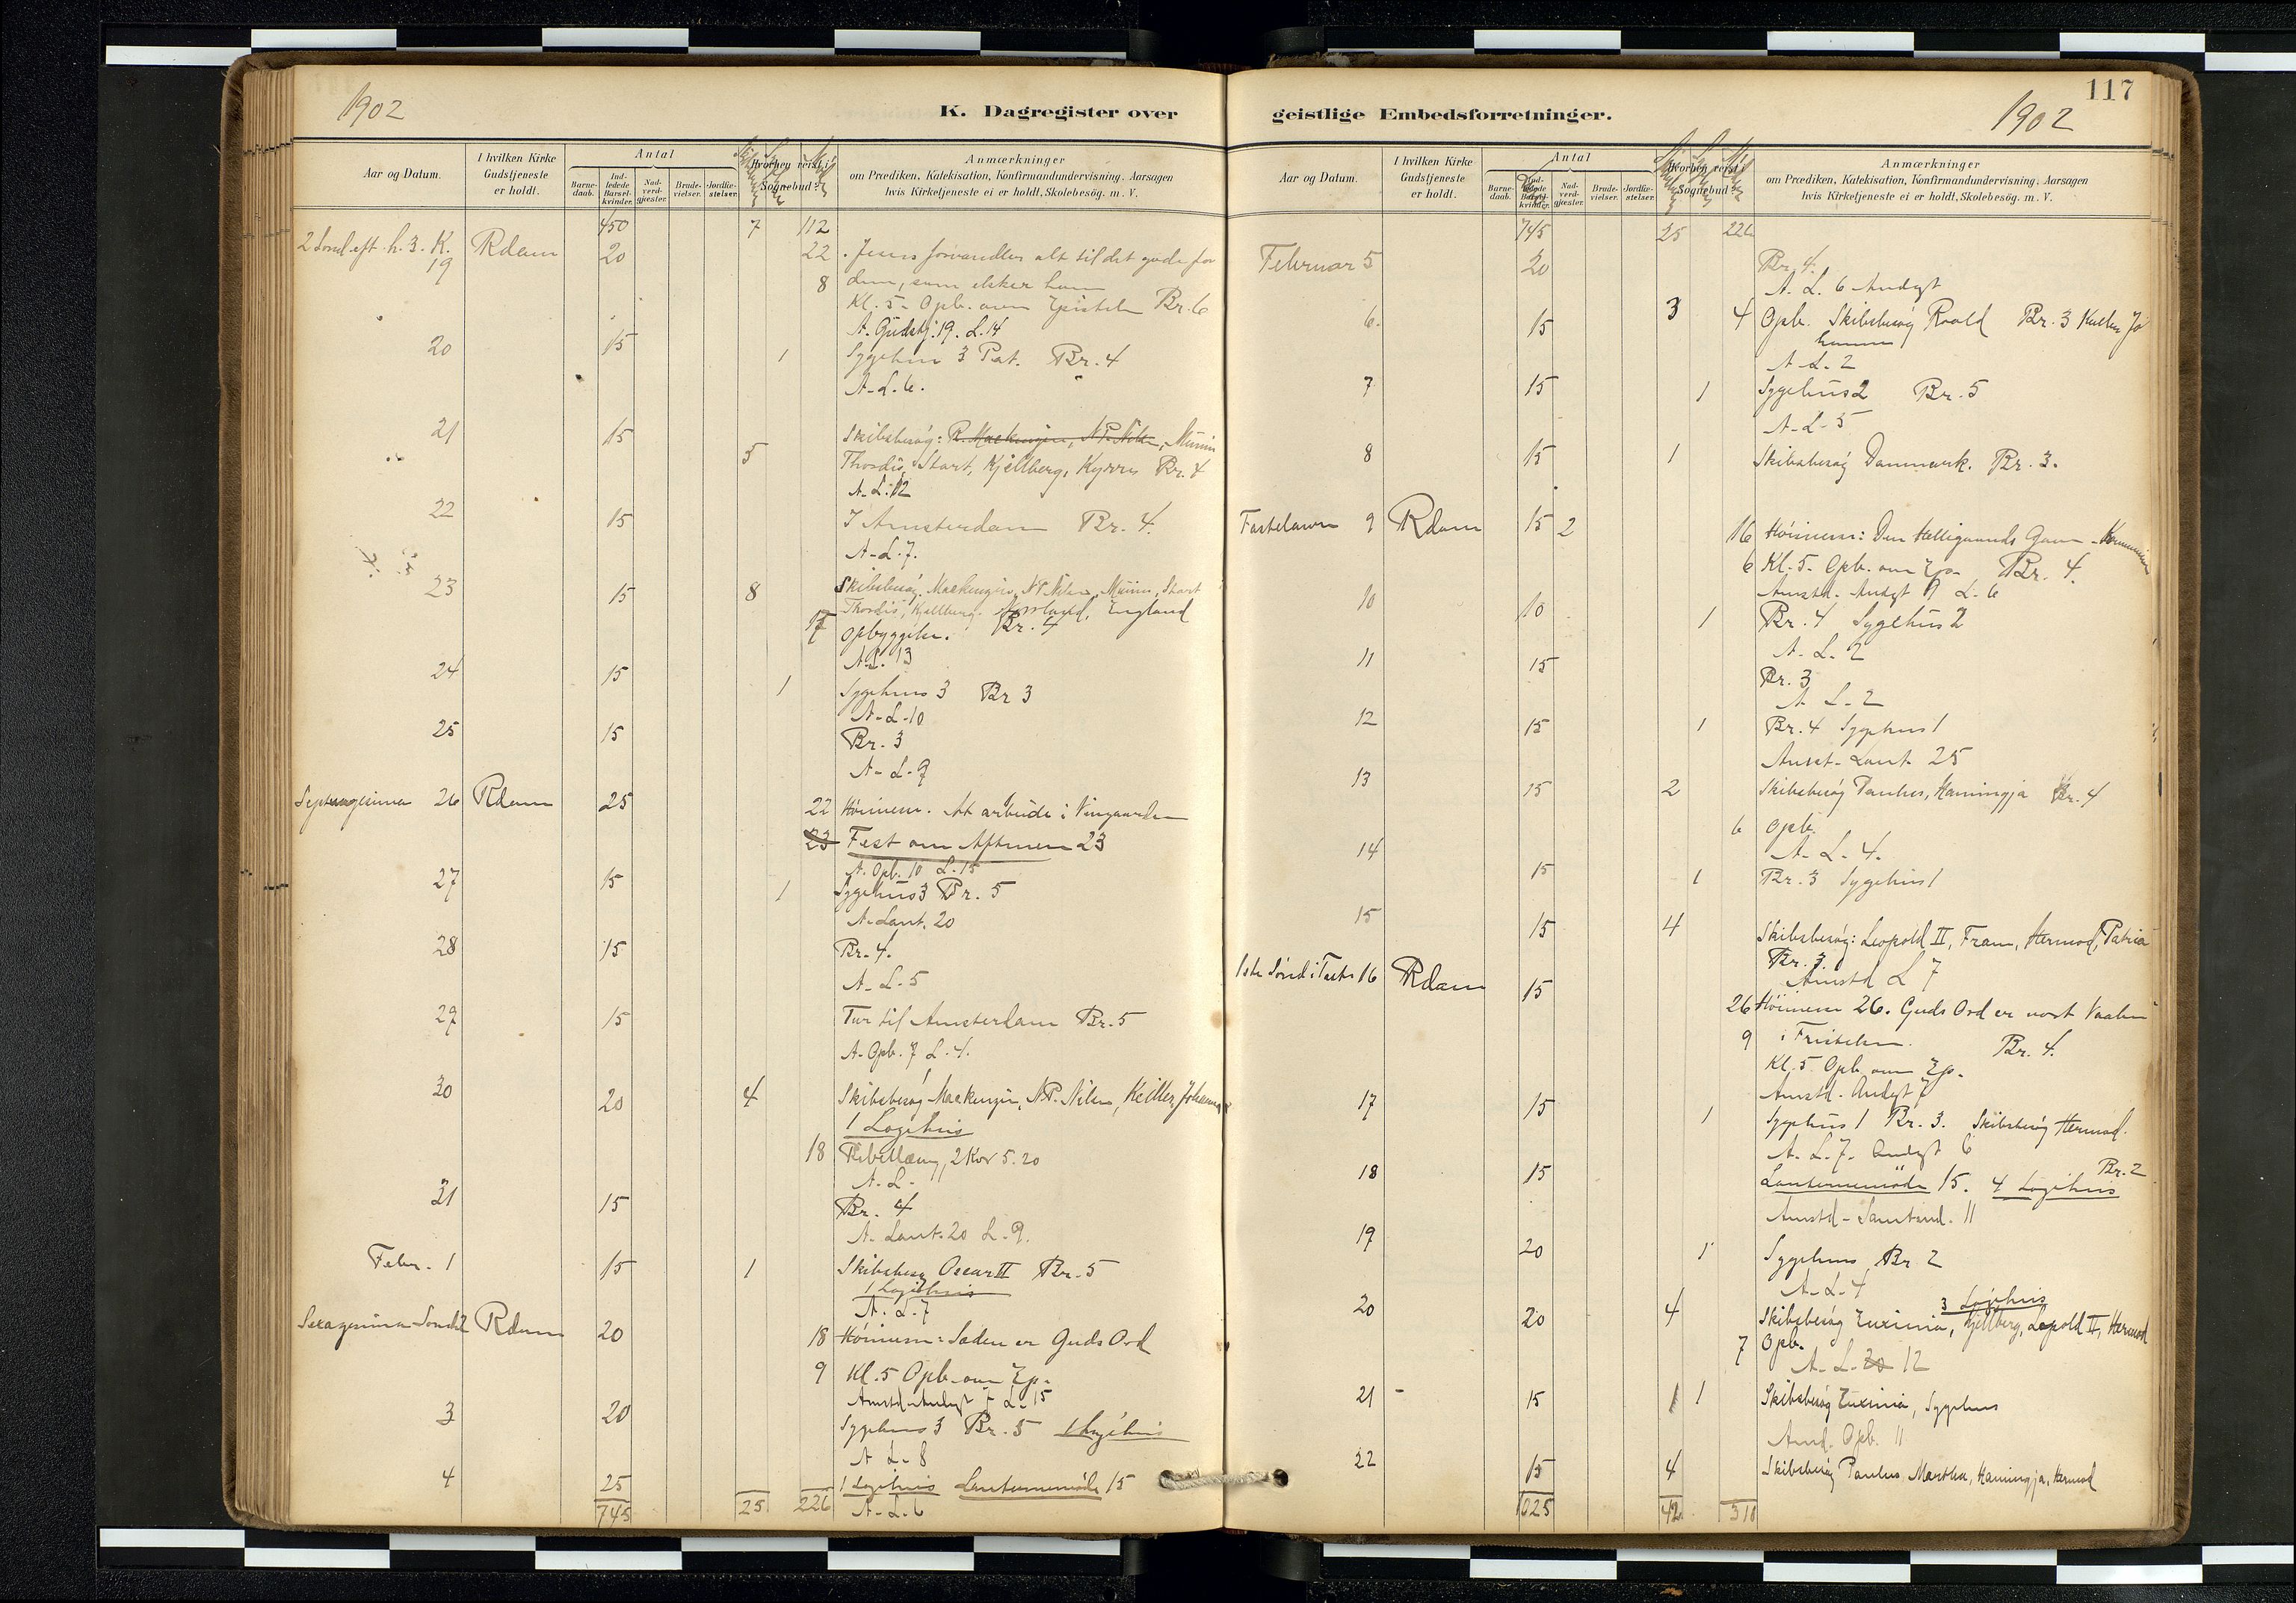 1902
K. Dagregister over
Aar og Datum.
I hvilken Kirke
Gudstjeneste
er holdt.
Antal
Barne-
daab.
Ind-
ledede
Barsel-
kvinder.
Nad-
verd-
gjæster.
Brude-
vielser.
Jordfæ-
stelser.
Hvorhen reist i
Sognebud?
Anmærkninger
om Prædiken, Katekisation, Konfirmandundervisning, Aarsagen
hvis Kirketjeneste ei er holdt, Skolebesøg. m. V.
450 7 112
2 Sønd. eft. h. 3. K. 19 Rdam 20 22 Jesus forvandler alt til det gode for
8 dem, som elsker ham
Kl. 5 - Opb. over Epistelen Br. 6
A. Gudstj. 19. L. 14
20 15 1 Sygehus 3 Pat. Br. 4
A-L. 6.
21 15 Skibsbesøg: R. Mackenzie, N.P. Nilsen, Munin
5 Thordis, Start, Kjellberg, Kyrres Br. 4
A-L. 12
22 15 I Amsterdam Br. 4.
A-L. 7.
23 15 8 Skibsbesøg. Mackenzie, N.P. Nilsen, Munin, Start
Thordis, Kjellberg. England
17 Opbyggelse. Br. 4
A.L. 13
24 15 1 Sygehus 3 Br 3
A-L-10
25 15 Br. 3
A-L-9
Septuagesima 26 Rdam 25 22 Høimesse. At arbeide i Vingaarden
23 Fest om Aftenen 23
A. Opb. 10 L. 15
27 15 1 Sygehus 3 Br. 5
A. Lant. 20
28 15 Br. 4.
A-L-5
29 15 Tur til Amsterdam Br. 5
A-Opb. 7 L. 4.
30 20 4 Skibsbesøg Mackenzie, N.P. Nilsen, Keiller, Johanna
1 Logihus
18 Bibellæsng, 2 Kor 5.20
A. L.
31 15 Br. 4
A-Lant. 20 L-9.
Febr. 1 15 1 Skibsbesøg Oscar II Br. 5
1 Logihus
A. L. 7
Sexagesima Sønd 2 Rdam 20 18 Høimesse: Sæden er Guds Ord
9 Kl. 5 Opb. over Ep.
Amstd. Andagt 7 L. 15
3 20 Sygehus 3 Br. 5 1 Logihus
A L. 8
4 25 1 Logihus Lanternemøde 15
745 25 226 A-L. 6
117
1902
geistlige Embedsforretninger.
Aar og Datum.
I hvilken Kirke
Gudstjeneste
er holdt.
Antal
Barne-
daab.
Ind-
ledede
Barsel-
kvinder.
Nad-
verd-
gjæster.
Brude-
vielser.
Jordfæ-
stelser.
Hvorhen reist i
Sognebud?
Anmærkninger
om Prædiken, Katekisation, Konfirmandundervisning, Aarsagen
hvis Kirketjeneste ei er holdt, Skolebesøg. m. V.
745 25 226
Februar 5 20 Br. 4.
A. L. 6 Andagt
6. 15 3 4 Opb. Skibsbesøg Roald Br. 3 Keiller, Jo
hanna
A-L. 2
7 15 1 Sygehus 2 Br. 5
A-L-5
8 15 1 Skibsbesøg Danmark. Br. 3.
Fastelavn 9 Rdam 15 2 16 Høimesse: Den Helligaands Gave - Kommunion
6 Kl. 5. Opb. over Ep. Br. 4.
Amstd. Andagt 9 L. 6
10 10 1 Br. 4 Sygehus 2
A. L. 2
11 15 Br. 3
A L-2
12 15 1 Br. 4 Sygehus 1
Amst. Lant. 25
13 15 2 Skibsbesøg Paulus, Hamingja Br. 4
6 Opb.
A-L-4.
14 15 1 Br. 3 Sygehus 1
15 15 4 Skibsbesøg: Leopold II, Fram, Hermod, Patria
Br. 3.
Amstd L 7
1ste Sønd i Faste 16 Rdam 15 26 Høimesse 26. Guds Ord er vort Vaaben
9 i Fristelsen. Br. 4.
Kl. 5 Opb. over Ep.
Amstd. Andagt 7
17 15 1 Sygehus 1 Br. 3. Skibsbesøg Hermod.
A. L. 7. Andagt 6
18 15 Lanternemøde 15. 4 Logihus Br. 2
Amstd - Samtand. 11
19 20 1 Sygehus Br. 2
A-L-4
20 20 4 Skibsbesøg Euxinia, Kjellberg, Leopold II, Hermod 3 Logihus
7 Opb.
A-L-20 12
21 - 15 1 1 Skibsbesøg Euxinia, Sygehus
Amd. Opb. 11
22 15 4 Skibsbesøg Paulus, Martha, Hamingja, Hermod
1025 42 318